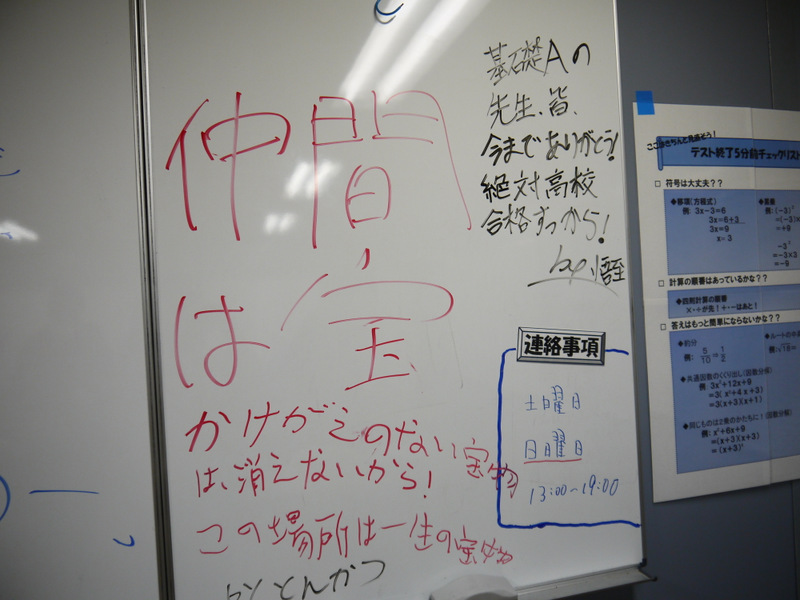 仲間
は宝
かけがえのない宝物
は、消えないから!
この場所は一生の宝物
とんかつ
基礎Aの
先生、皆、
今までありがとう!
絶対高校
合格すっから!
by
連絡事項
土曜日
日曜日
13:00~19:00
テスト終了5分前チェックリスト
□ 符号は大丈夫??
◆移項(方程式)
例: 3x-3=6
3x=6+3
3x=9
x=3
例: (-3)²
=+9
-3²
=-3×3
=-9
□ 計算の順番はあっているかな??
◆四則計算の順番
×・÷が先!+・-はあと!
□ 答えはもっと簡単にならないかな??
◆約分
例: 5/10=1/2
◆共通因数のくくり出し(因数分解)
例: 3x²+12x+9
=3(x²+4x+3)
=3(x+3)(x+1)
◆同じものは2乗のかたちに!(因数分解)
例: x²+6x+9
=(x+3)(x+3)
=(x+3)²